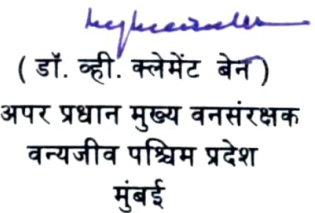 ( डॉ. व्ही. क्लेमेंट बेन )
अपर प्रधान मुख्य वनसंरक्षक
वन्यजीव पश्चिम प्रदेश
मुंबई